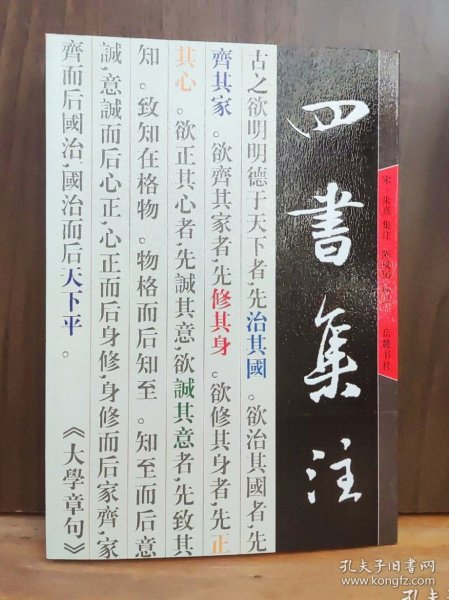 宋·朱熹 集注
岳麓书社
四書集注
古之欲明明德于天下者,先治其國。欲治其國者,先
齊其家。欲齊其家者,先修其身。欲修其身者,先正
其心。欲正其心者,先誠其意,欲誠其意者,先致其
知。致知在格物。物格而后知至。知至而后意
誠,意誠而后心正,心正而后身修,身修而后家齊,家
齊而后國治,國治而后天下平。
《大學章句》
孔夫子旧书网
www.kongfz.com
孔夫